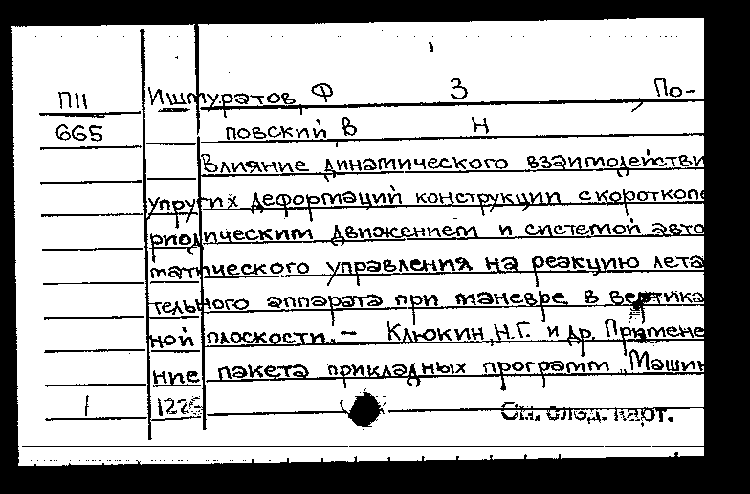 П11 Иштуратов, Ф З , По-
665 повский, В Н
Влияние динамического взаимодействи
упругих деформаций конструкции с короткопе
риодическим движением и системой авто
матического управления на реакцию лета
тельного аппарата при маневре в вертика
ной плоскости. – Клюкин, Н.Г. и др. Примене
ние пакета прикладных программ „Машин
1 122
См. след. карт.